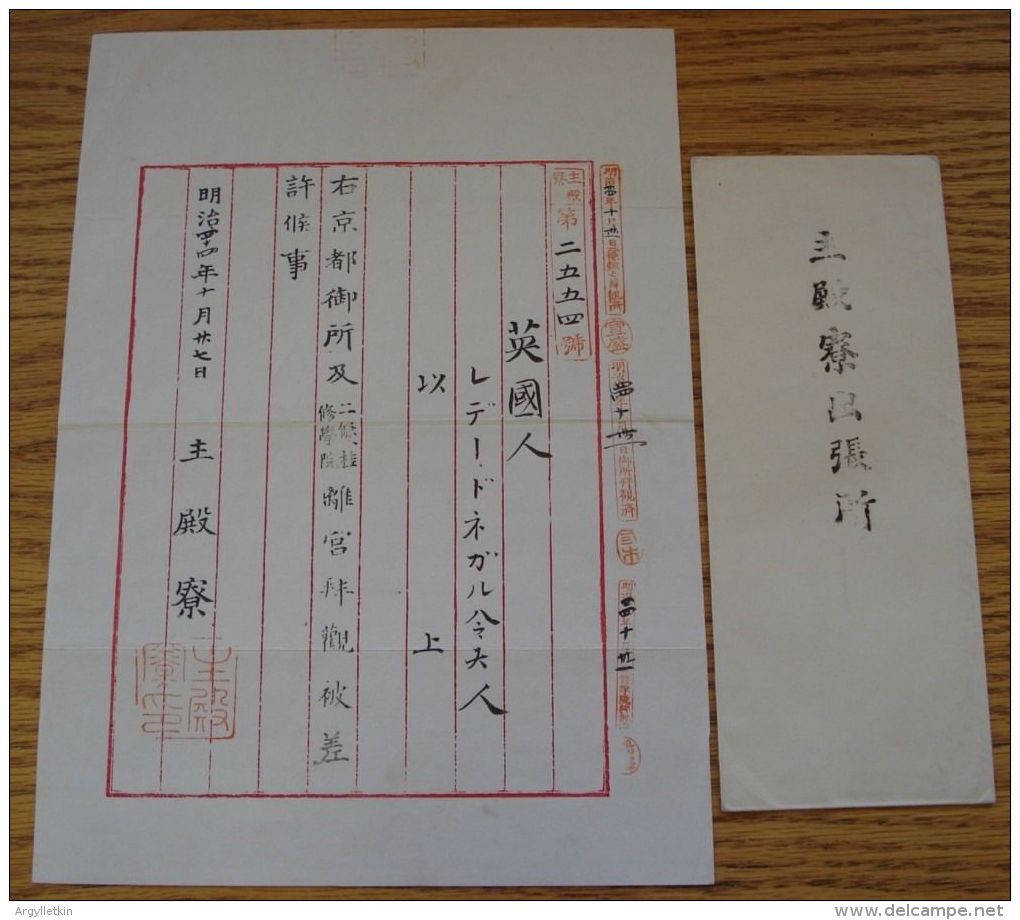 主殿寮
第二五五四號
英國人
レデー、ドネガル令夫人
以上
右京都御所及二條桂修學院離宮拝觀被差
許候事
明治四十四年十月廿七日 主殿寮
主殿寮出張所
Argylletkin
www.delcampe.net